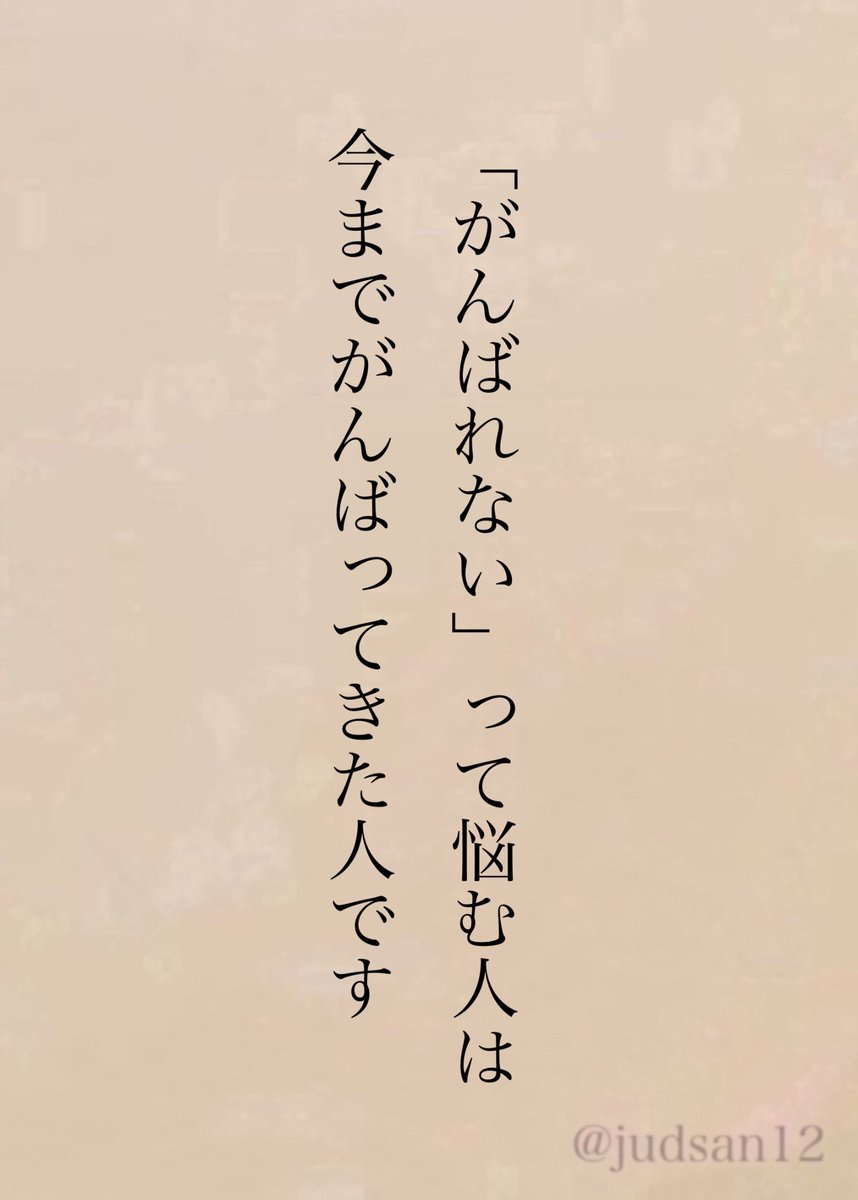 「がんばれない」って悩む人は
今までがんばってきた人です
@judsan12